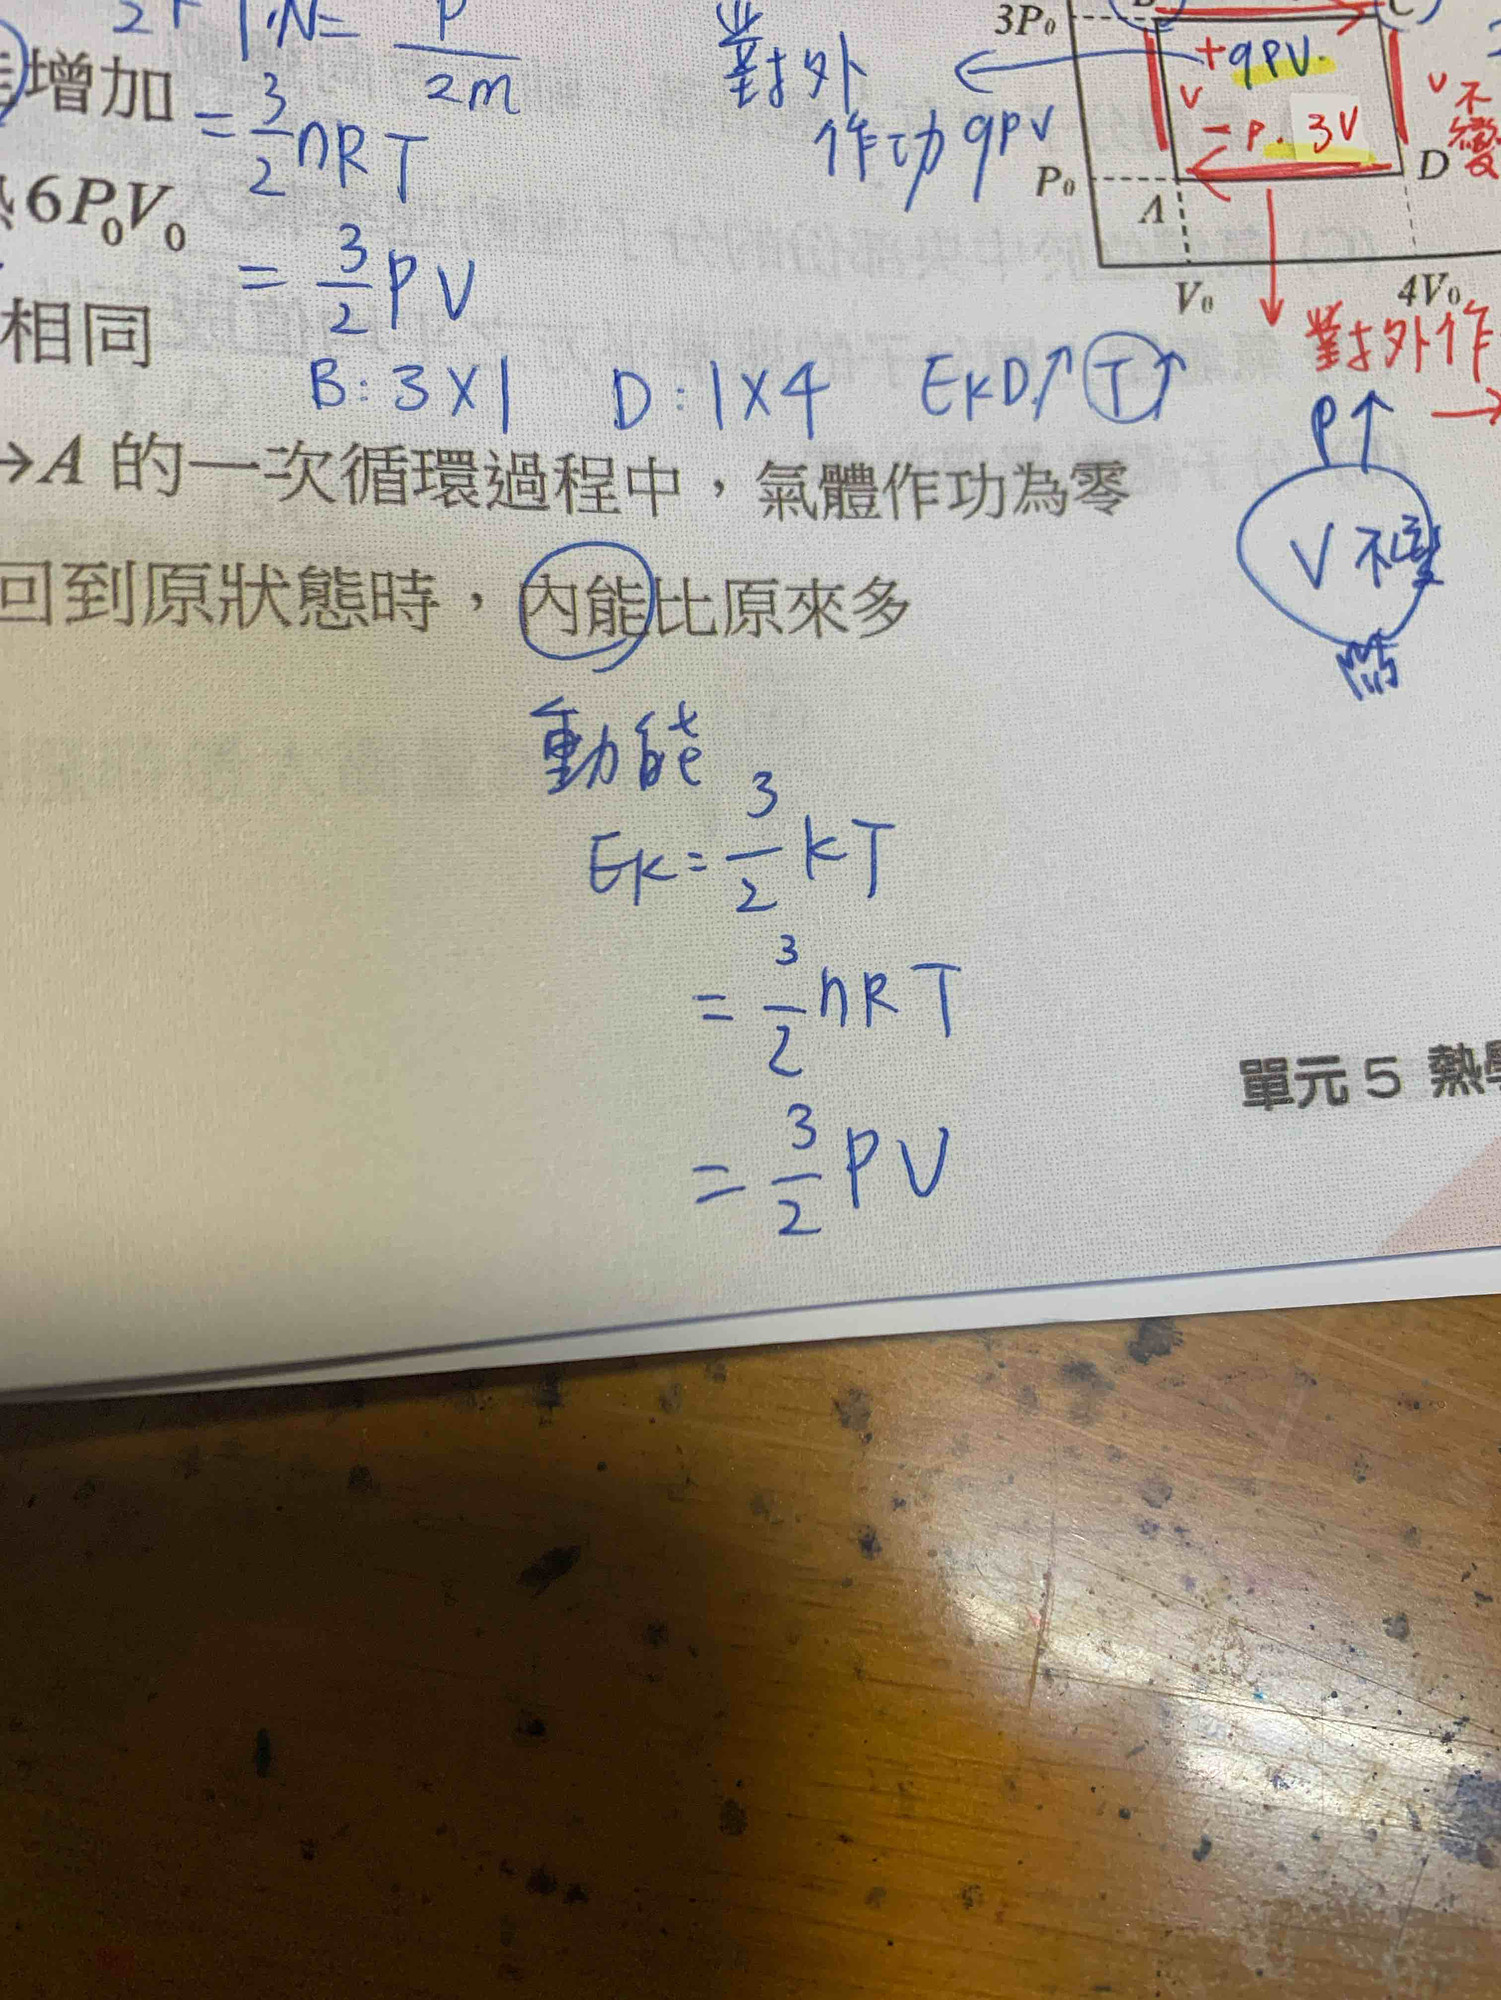 N = P
2m
增加
= 3/2 nRT
6P₀V₀
= 3/2 PV
相同
B: 3×1 D: 1×4 EKD↑ T↑
對外
作功9PV
3P₀
C
+9PV
V
-P. 3V
V不變
P₀
A
D
V₀
4V₀
對外作
→A 的一次循環過程中，氣體作功為零
回到原狀態時，內能比原來多
P↑
V不變
動能
EK = 3/2 kT
= 3/2 nRT
= 3/2 PV
單元 5 熱學